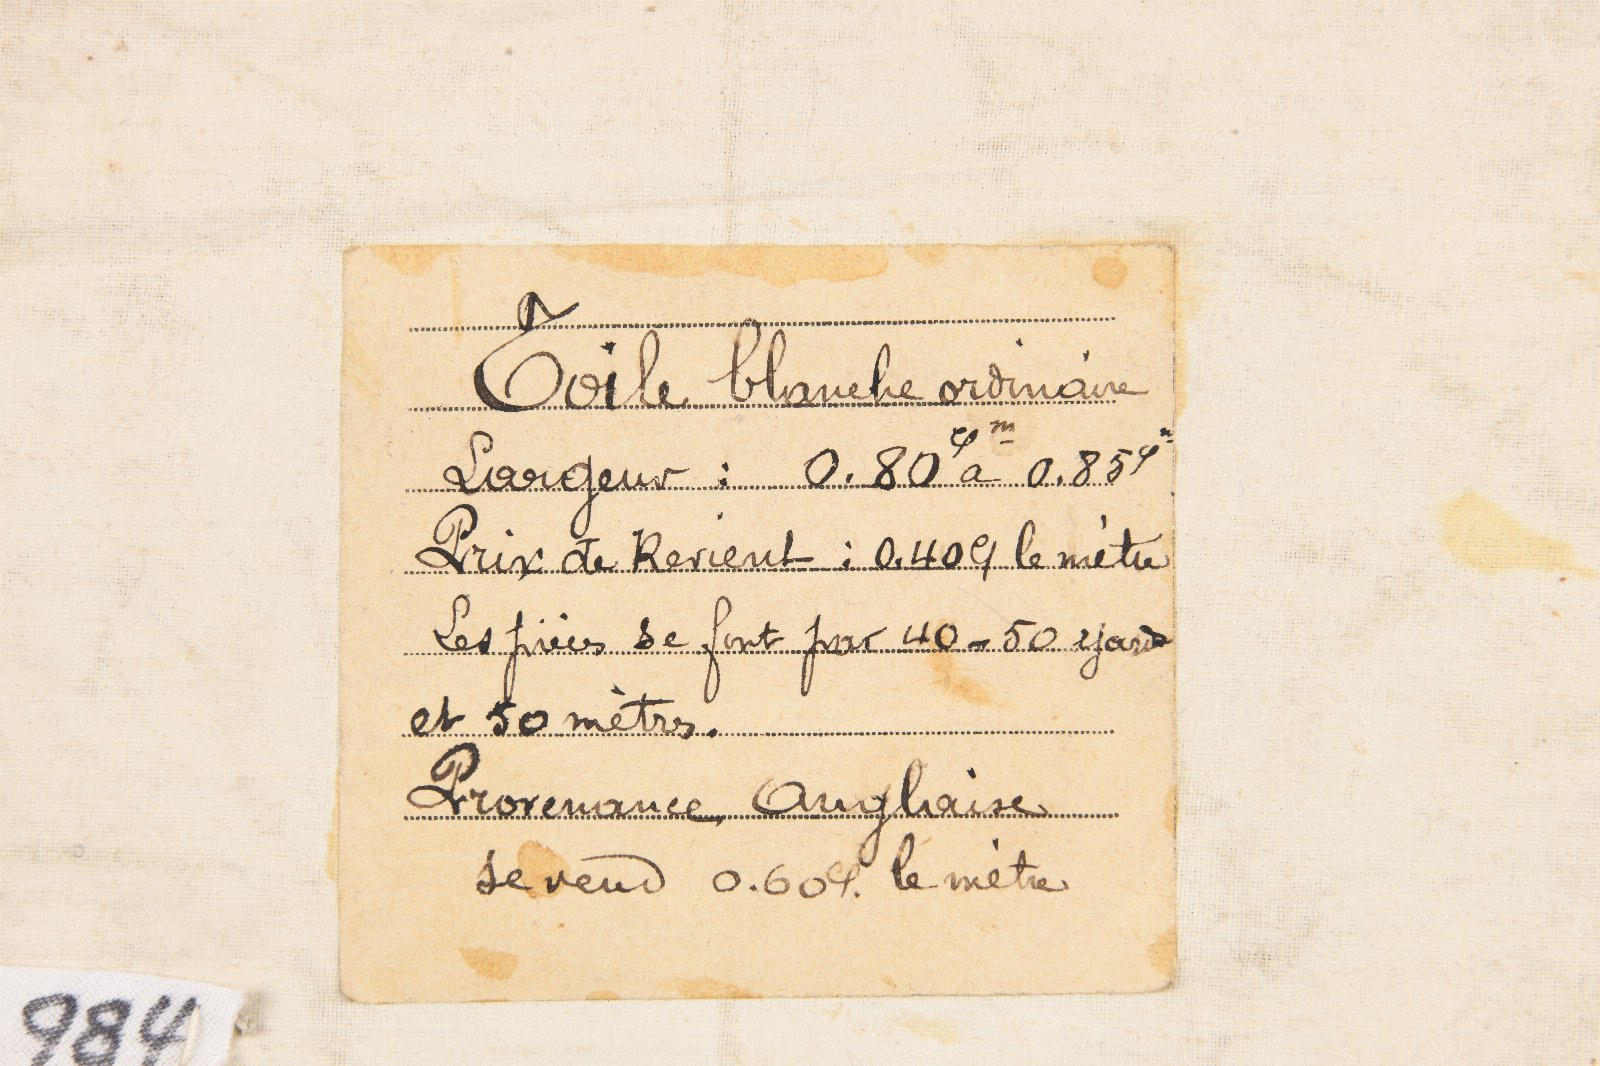 Toile blanche ordinaire
Largeur : 0.80 cm à 0.85 cm
Prix de Revient : 0.40c le mètre
Les pièces se font par 40-50 yards
et 50 mètres.
Provenance Anglaise
se vend 0.60c. le mètre
984